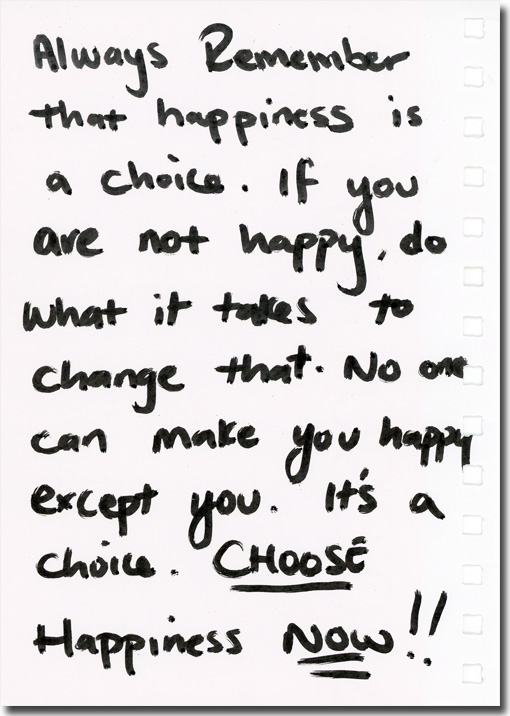 Always Remember
that happiness is
a choice. If you
are not happy, do
what it takes to
change that. No one
can make you happy
except you. It's a
choice. CHOOSE
Happiness NOW!!